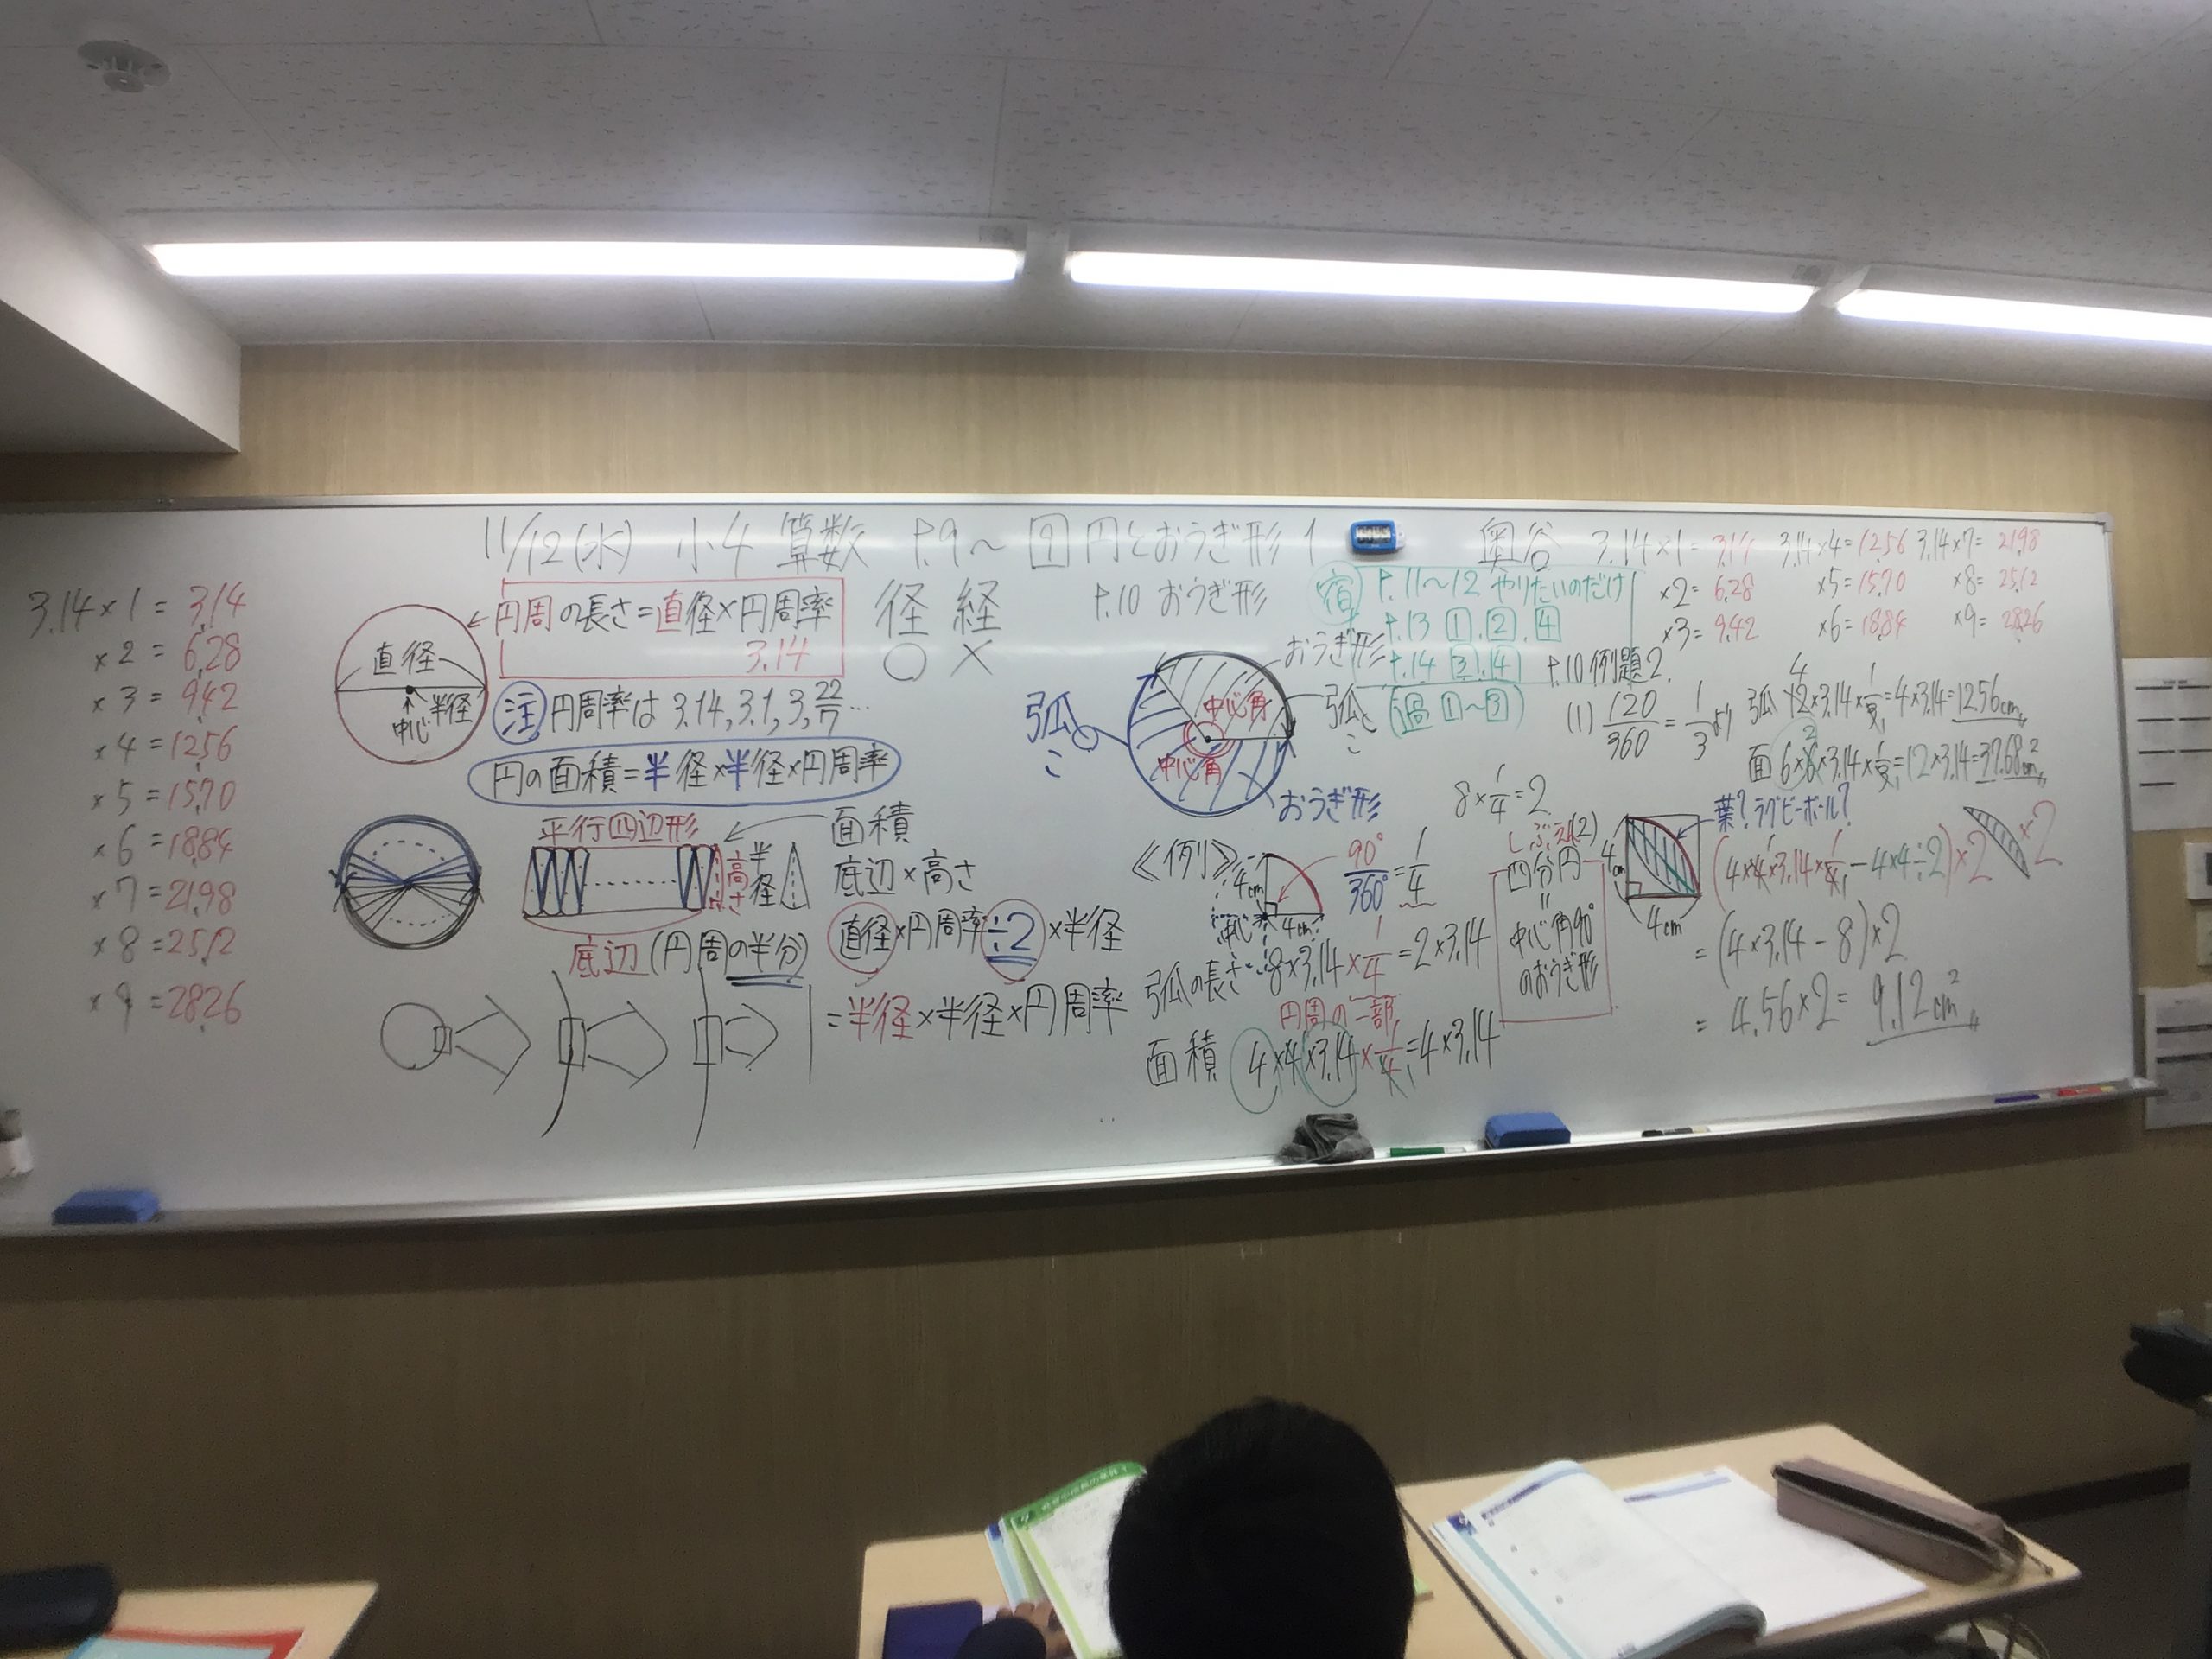 11/12(水) 小4 算数 P.9〜 9 円とおうぎ形 1 奥谷
3.14×1=3.14
×2=6.28
×3=9.42
×4=12.56
×5=15.70
×6=18.84
×7=21.98
×8=25.12
×9=28.26
直径
半径
中心
円周の長さ=直径×円周率
3.14
径 経
○ ×
注 円周率は 3.14, 3.1, 3, 22/7 …
円の面積=半径×半径×円周率
平行四辺形
高さ
半径
底辺(円周の半分)
面積
底辺×高さ
直径×円周率÷2×半径
=半径×半径×円周率
P.10 おうぎ形
宿 P.11〜12 やりたいのだけ
P.13 1, 2, 4
P.14 3, 14
(過 1〜3)
おうぎ形
弧
こ
中心角
中心角
弧
こ
おうぎ形
8×1/4=2
《例》
4cm
中心
4cm
90°/360°=1/4
弧の長さ…8×3.14×1/4=2×3.14
円周の一部
面積 4×4×3.14×1/4=4×3.14
四分円
=
中心角90°
のおうぎ形
3.14×1=3.14 3.14×4=12.56 3.14×7=21.98
×2=6.28 ×5=15.70 ×8=25.12
×3=9.42 ×6=18.84 ×9=28.26
P.10 例題2.
(1) 120/360=1/3より
弧 12×3.14×1/3=4×3.14=12.56cm
面 6×6×3.14×1/3=12×3.14=37.68cm²
(2)
4cm
4cm
葉? ラグビーボール?
(4×4×3.14×1/4-4×4÷2)×2
×2
=(4×3.14-8)×2
=4.56×2=9.12cm²